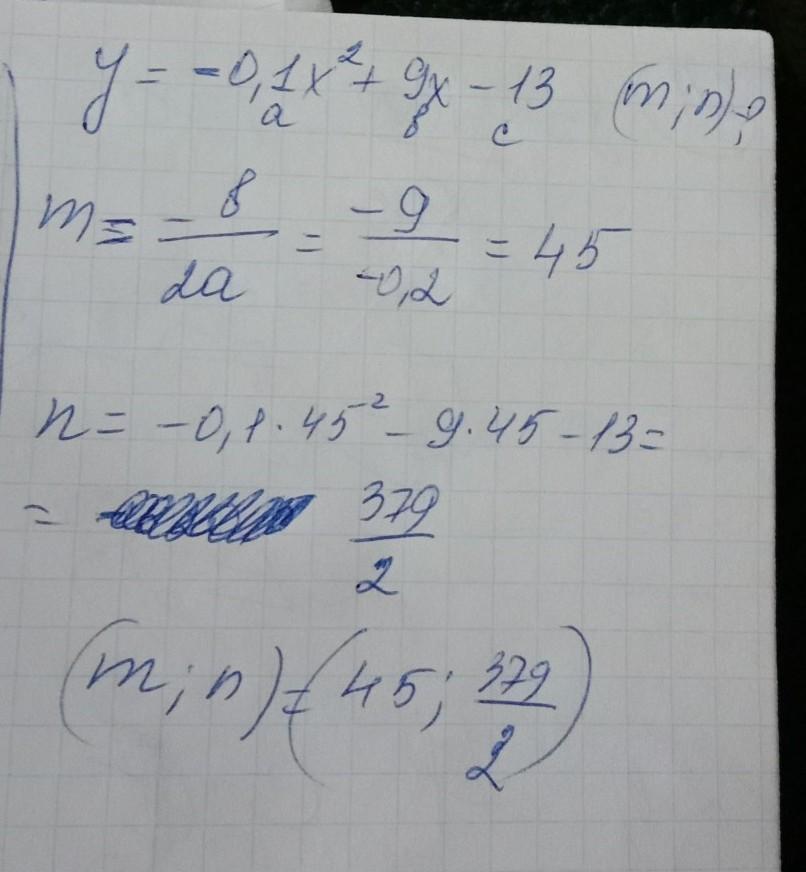 y = -0,1x² + 9x - 13 (m; n) - ?
a в c
m = - в / 2a = -9 / -0,2 = 45
n = -0,1 · 45² - 9 · 45 - 13 =
= 379 / 2
(m; n) = (45; 379 / 2)